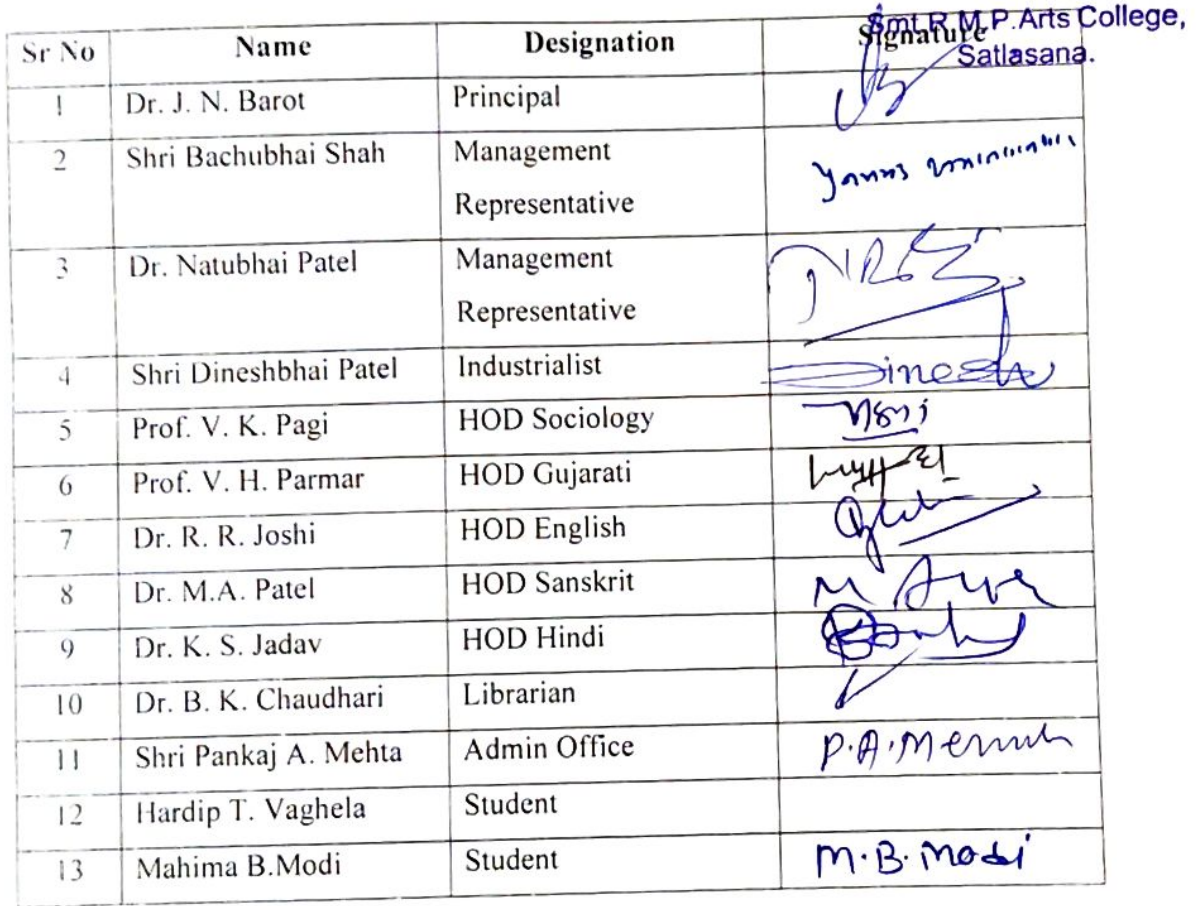 Smt.R.M.P.Arts College,
Satlasana.
Sr No Name Designation Signature
1 Dr. J. N. Barot Principal
2 Shri Bachubhai Shah Management
Representative
3 Dr. Natubhai Patel Management
Representative
4 Shri Dineshbhai Patel Industrialist Dinesh
5 Prof. V. K. Pagi HOD Sociology
6 Prof. V. H. Parmar HOD Gujarati
7 Dr. R. R. Joshi HOD English
8 Dr. M.A. Patel HOD Sanskrit
9 Dr. K. S. Jadav HOD Hindi
10 Dr. B. K. Chaudhari Librarian
11 Shri Pankaj A. Mehta Admin Office P.A.
12 Hardip T. Vaghela Student
13 Mahima B.Modi Student M.B. Modi